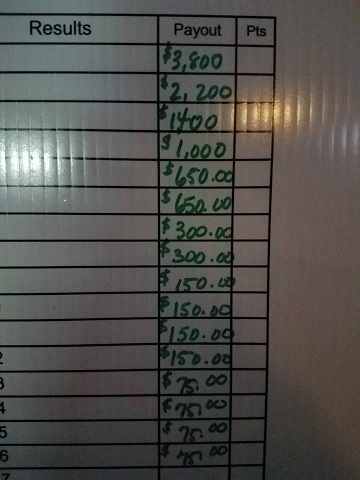 Results Payout Pts
$3,800
$2,200
$1400
$1,000
$650.00
$650.00
$300.00
$300.00
$150.00
$150.00
$150.00
2 $150.00
3 $75.00
4 $75.00
5 $75.00
6 $75.00
7